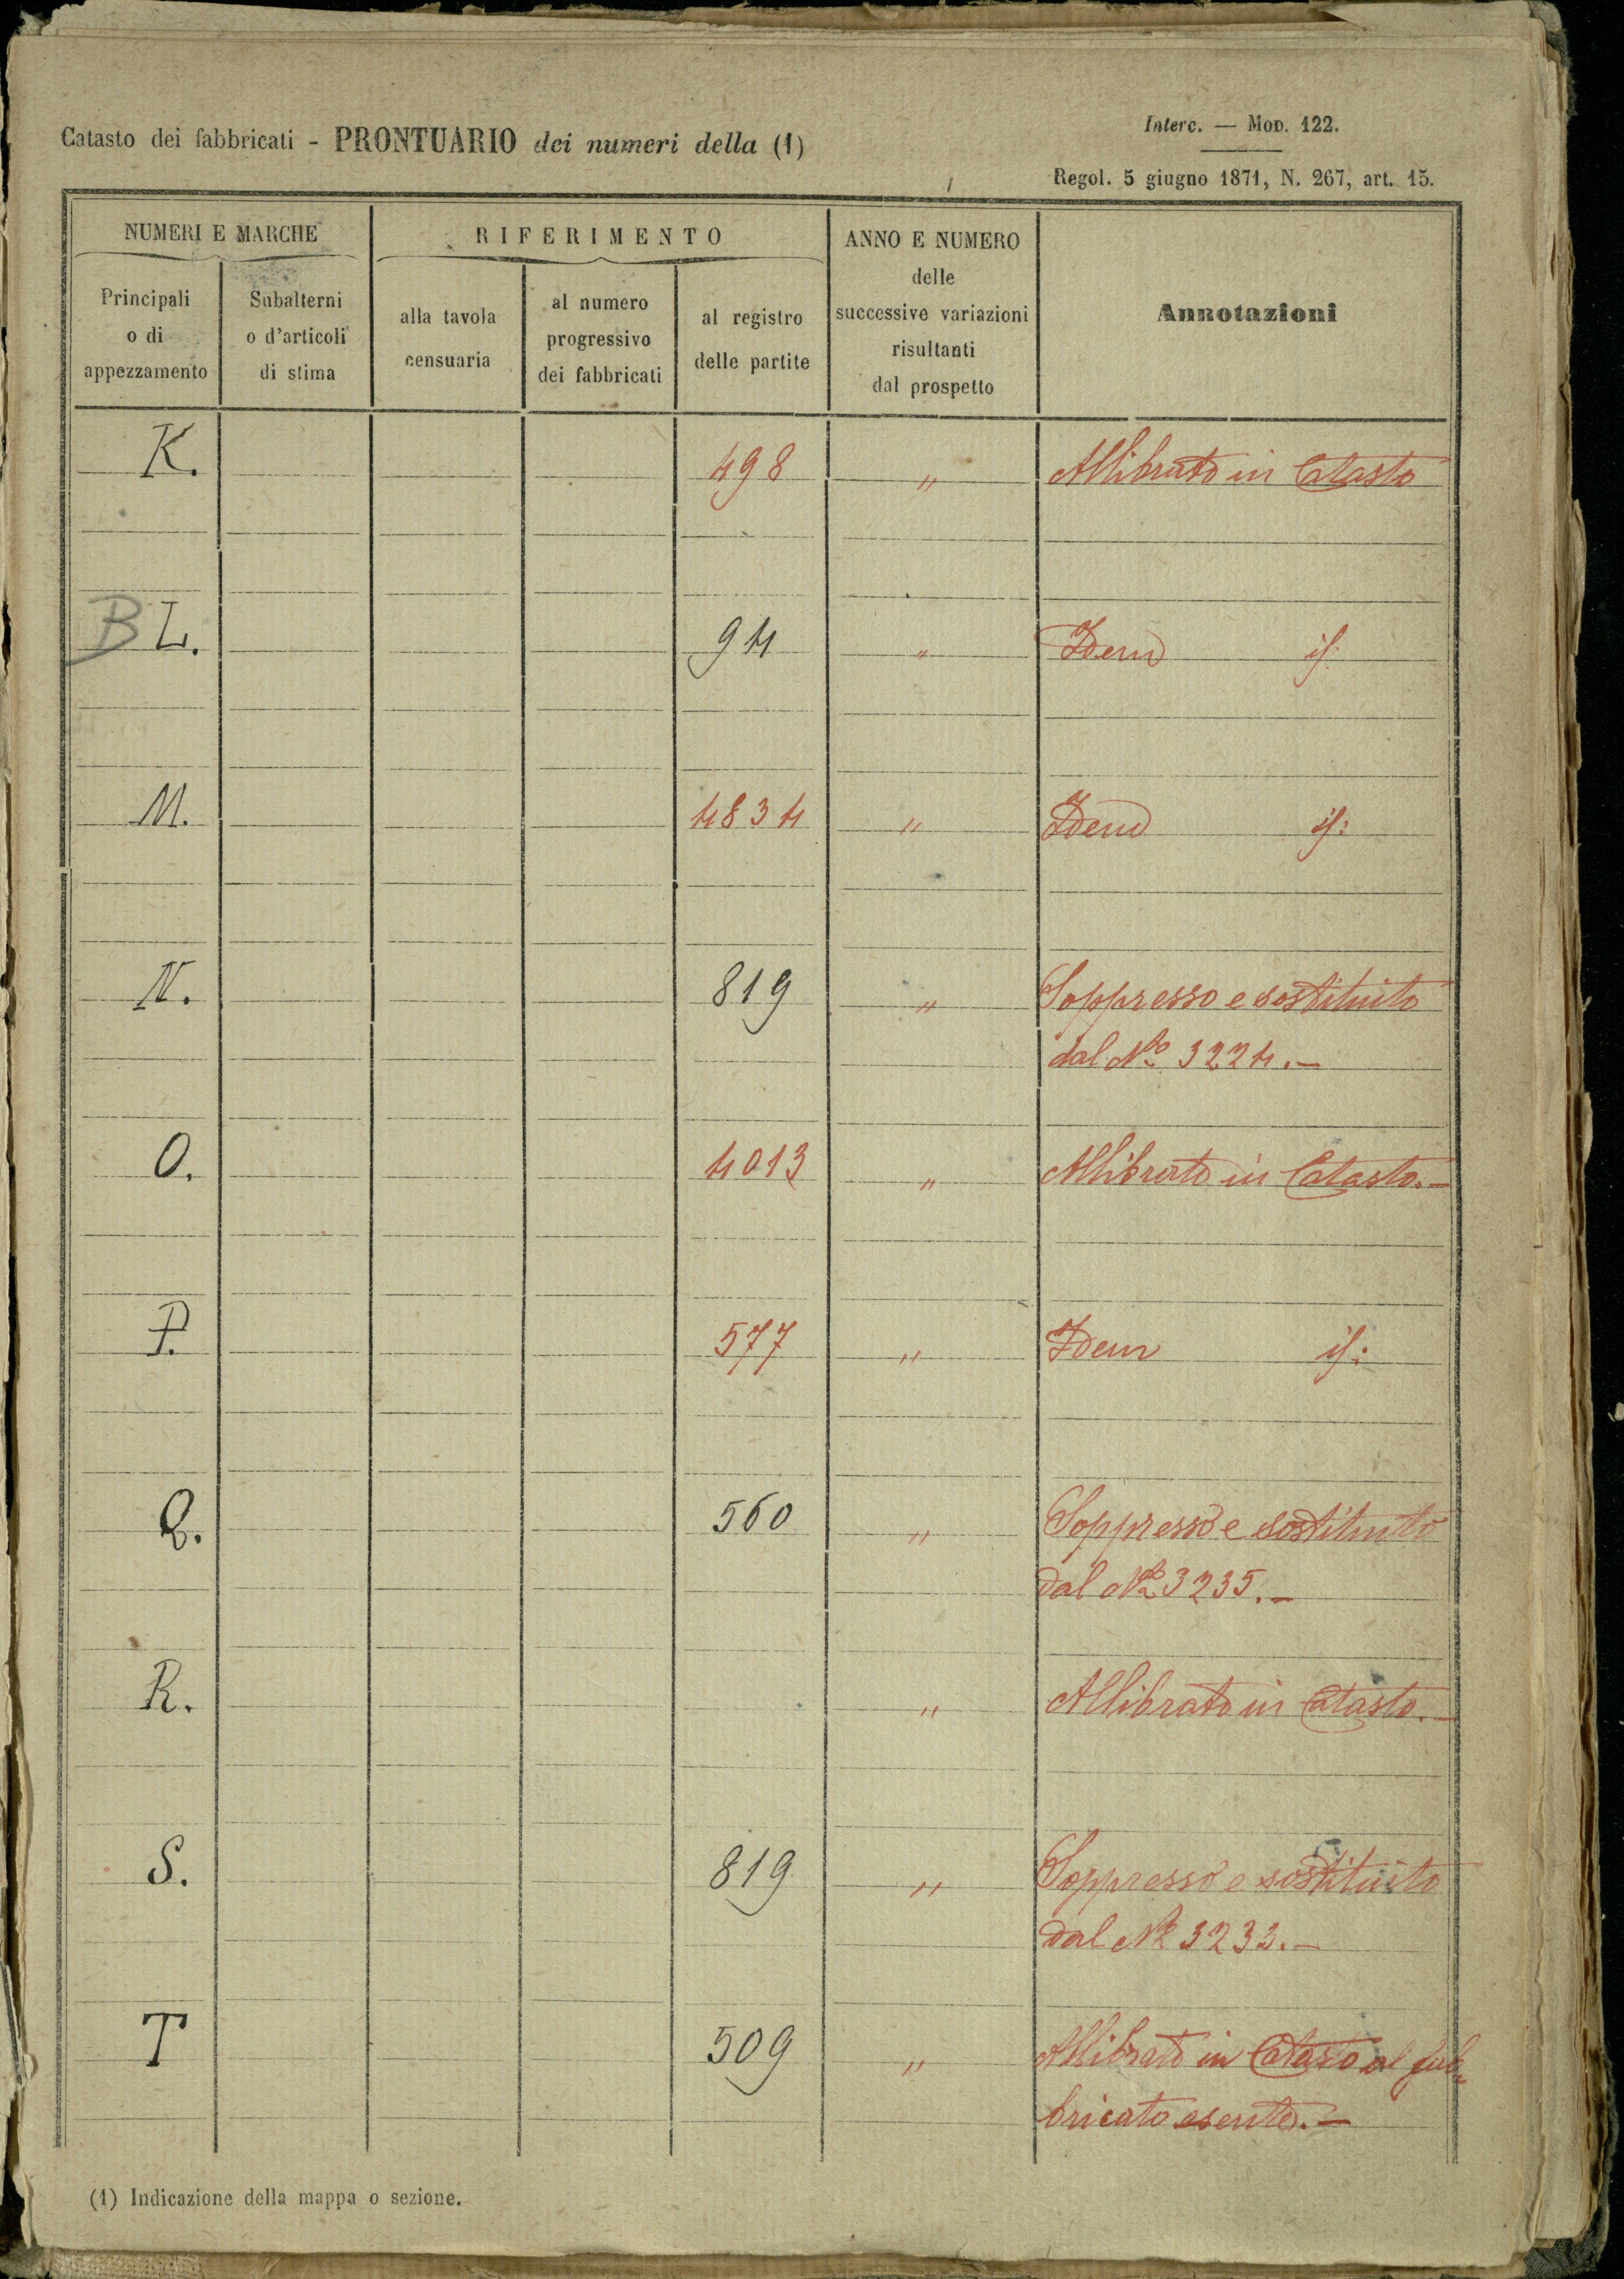 Catasto dei fabbricati - PRONTUARIO dei numeri della (1)
Interc. — Mod. 122.
Regol. 5 giugno 1871, N. 267, art. 15.
NUMERI E MARCHE
RIFERIMENTO
ANNO E NUMERO
delle
successive variazioni
risultanti
dal prospetto
Annotazioni
Principali
o di
appezzamento
Subalterni
o d'articoli
di stima
alla tavola
censuaria
al numero
progressivo
dei fabbricati
al registro
delle partite
K. 498 " Allibrato in Catasto
B L. 94 " Idem if:
M. 4834 " Idem if:
N. 819 " Soppresso e sostituito
dal No 3224.-
O. 4013 " Allibrato in Catasto.-
P. 577 " Idem if:
Q. 560 " Soppresso e sostituito
dal No 3235.-
R. " Allibrato in Catasto.-
S. 819 " Soppresso e sostituito
dal No 3233.-
T 509 " Allibrato in Catasto al fab„
bricato esente.-
(1) Indicazione della mappa o sezione.